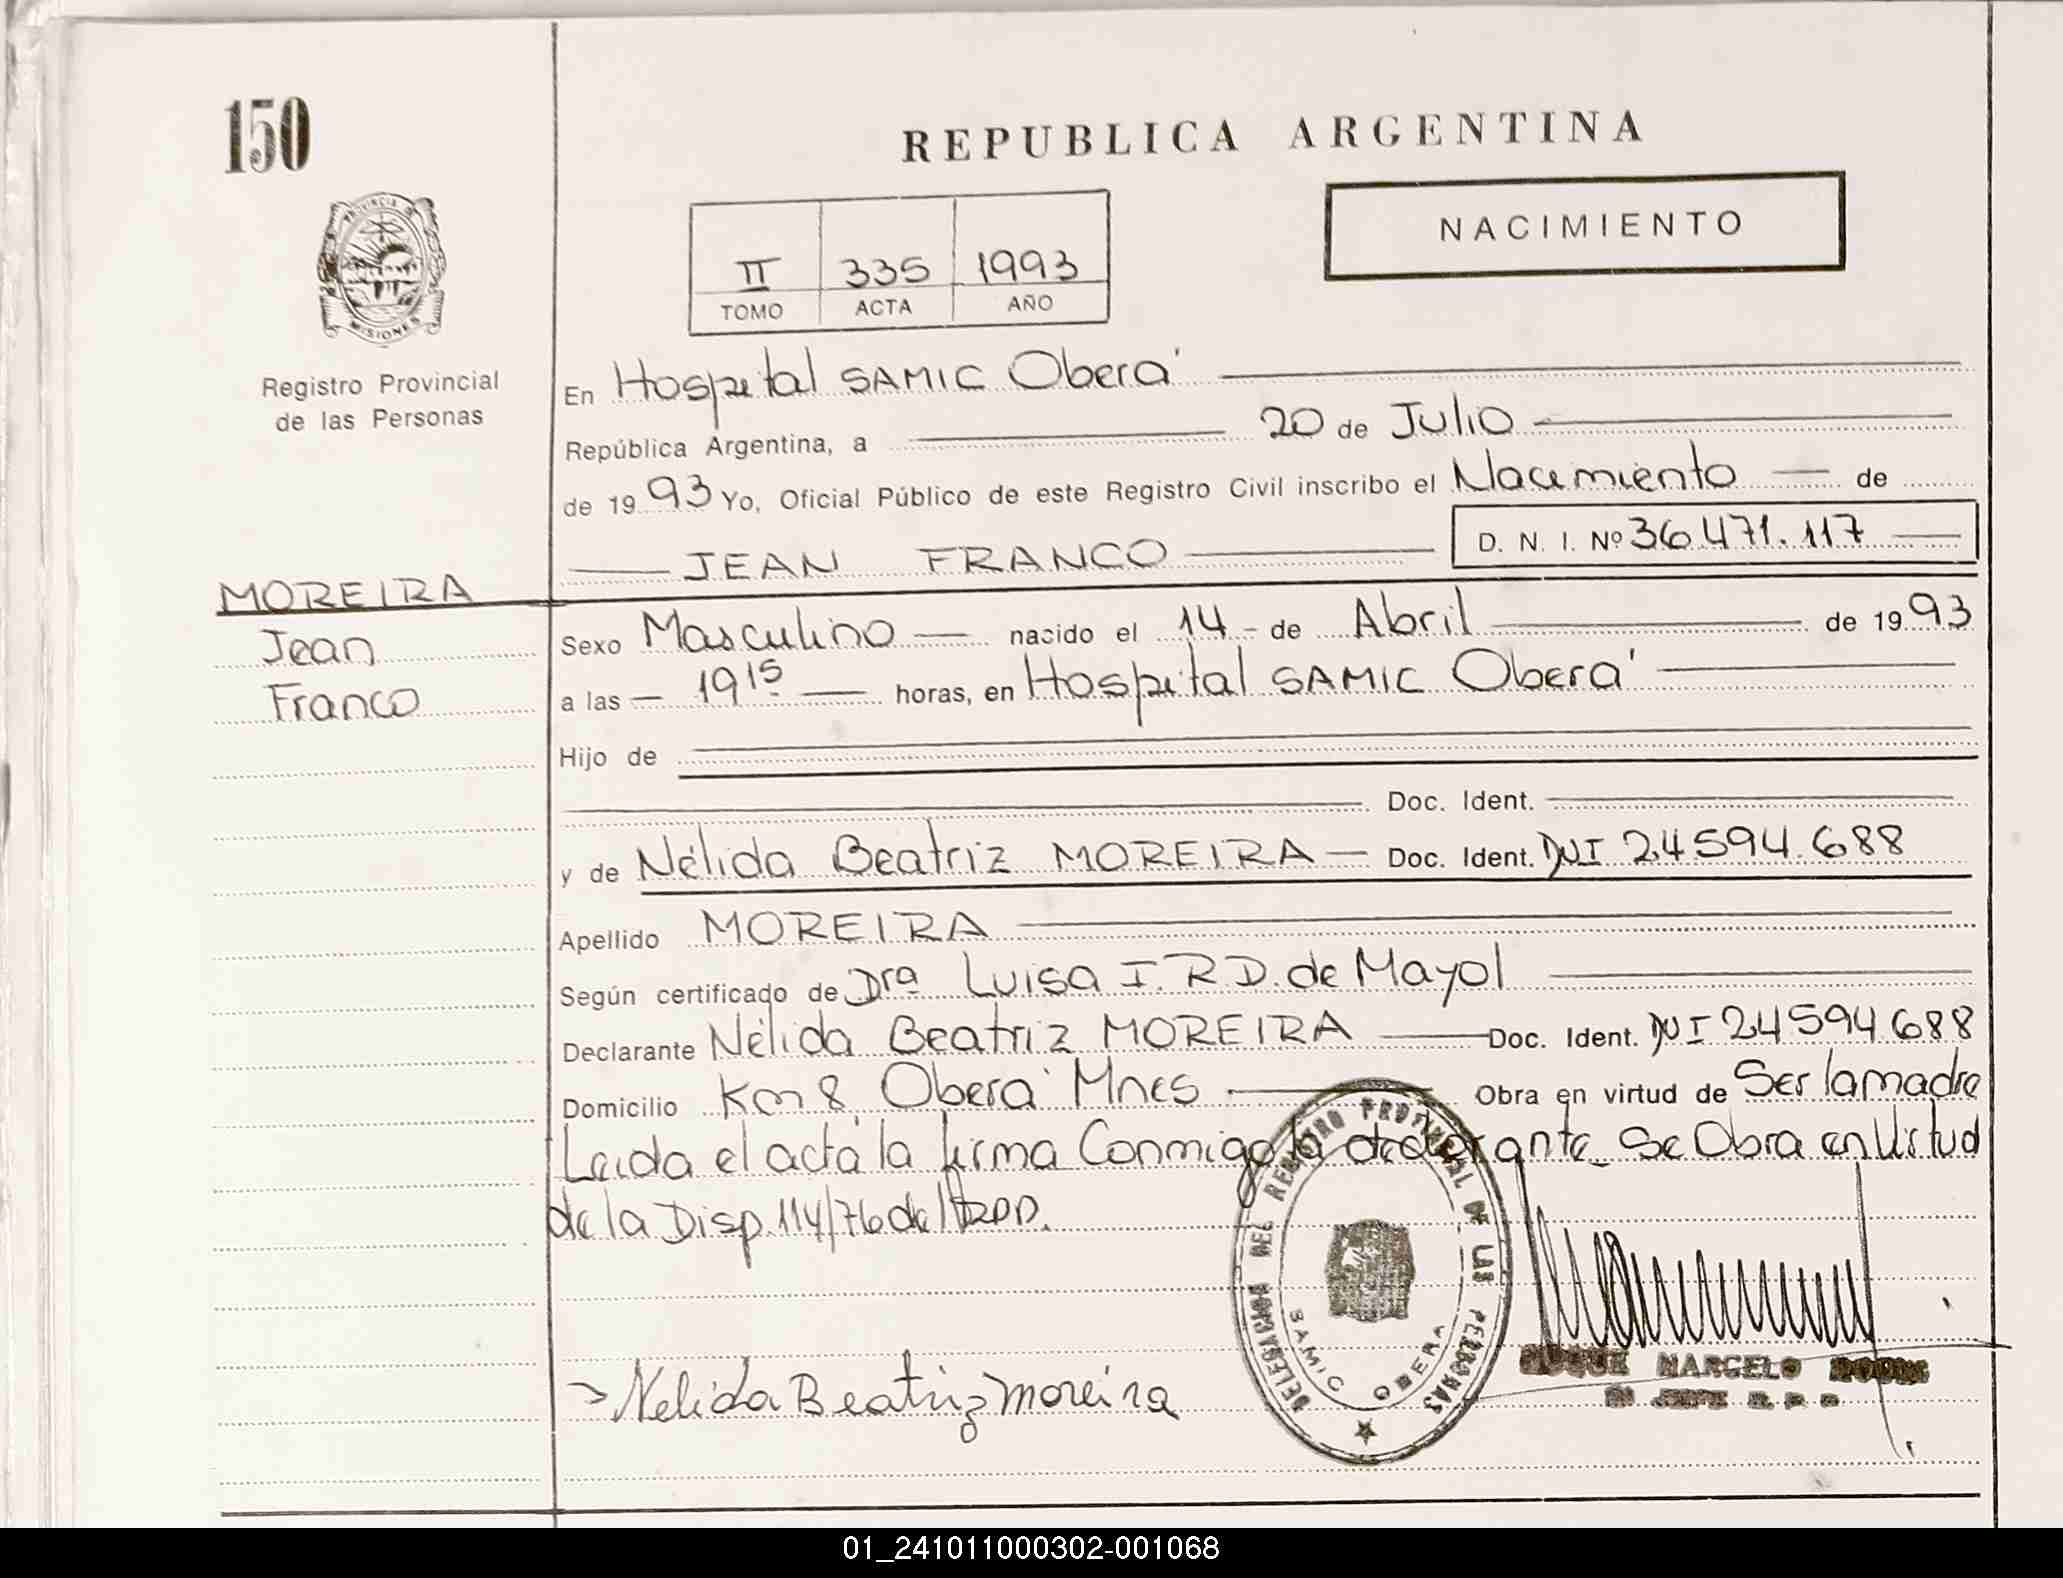 150
REPUBLICA ARGENTINA
PROVINCIA DE
MISIONES
NACIMIENTO
II 335 1993
TOMO ACTA AÑO
Registro Provincial
de las Personas
En Hospital SAMIC Oberá
República Argentina, a 20 de Julio
de 1993 Yo, Oficial Público de este Registro Civil inscribo el Nacimiento de
JEAN FRANCO D. N. I. Nº 36.471.117
MOREIRA
Jean
Franco
Sexo Masculino nacido el 14 de Abril de 1993
a las 19 15 horas, en Hospital SAMIC Oberá
Hijo de
Doc. Ident.
y de Nélida Beatriz MOREIRA Doc. Ident. DNI 24594.688
Apellido MOREIRA
Según certificado de Dra Luisa I. R D. de Mayol
Declarante Nélida Beatriz MOREIRA Doc. Ident. DNI 24594.688
Domicilio Km 8 Oberá Mnes Obra en virtud de Ser la madre
Leida el acta la firma Conmigo la declarante Se Obra en Virtud
de la Disp. 114/76 del
DELEGACION DEL REGISTRO PROVINCIAL DE LAS PERSONAS
SAMIC OBERA
Nelida Beatriz Moreira
MARCELO
01_241011000302-001068